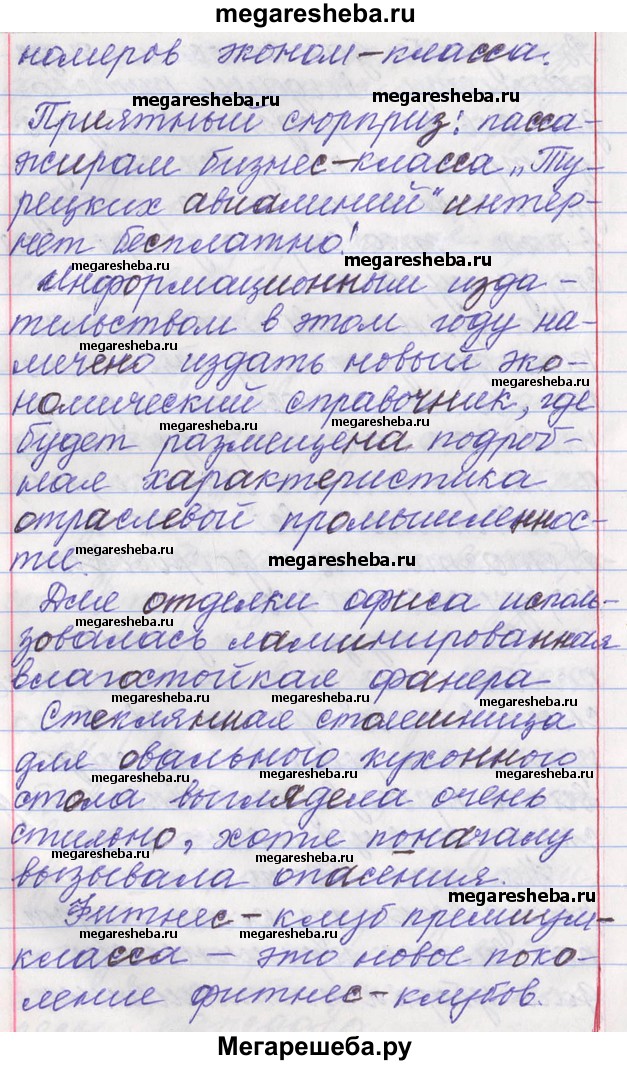 megaresheba.ru
номеров эконом-класса.
megaresheba.ru megaresheba.ru
Приятный сюрприз: пасса-
жирам бизнес-класса „Ту-
рецких авиалиний" интер-
нет бесплатно!
megaresheba.ru megaresheba.ru
Информационным изда-
тельством в этом году на-
мечено издать новый эко-
megaresheba.ru
номический справочник, где
megaresheba.ru megaresheba.ru
будет размещена подроб-
ная характеристика
отраслевой промышленнос-
ти.
megaresheba.ru megaresheba.ru
Для отделки офиса исполь-
megaresheba.ru
зовалась ламинированная
влагостойкая фанера
megaresheba.ru megaresheba.ru megaresheba.ru
Стеклянная столешница
для овального кухонного
megaresheba.ru megaresheba.ru megaresheba.ru
стола выглядела очень
стильно, хотя поначалу
megaresheba.ru megaresheba.ru
вызывала опасения.
megaresheba.ru
Фитнес-клуб премиум-
megaresheba.ru megaresheba.ru megaresheba.ru
класса – это новое поко-
ление фитнес-клубов.
Мегарешеба.ру